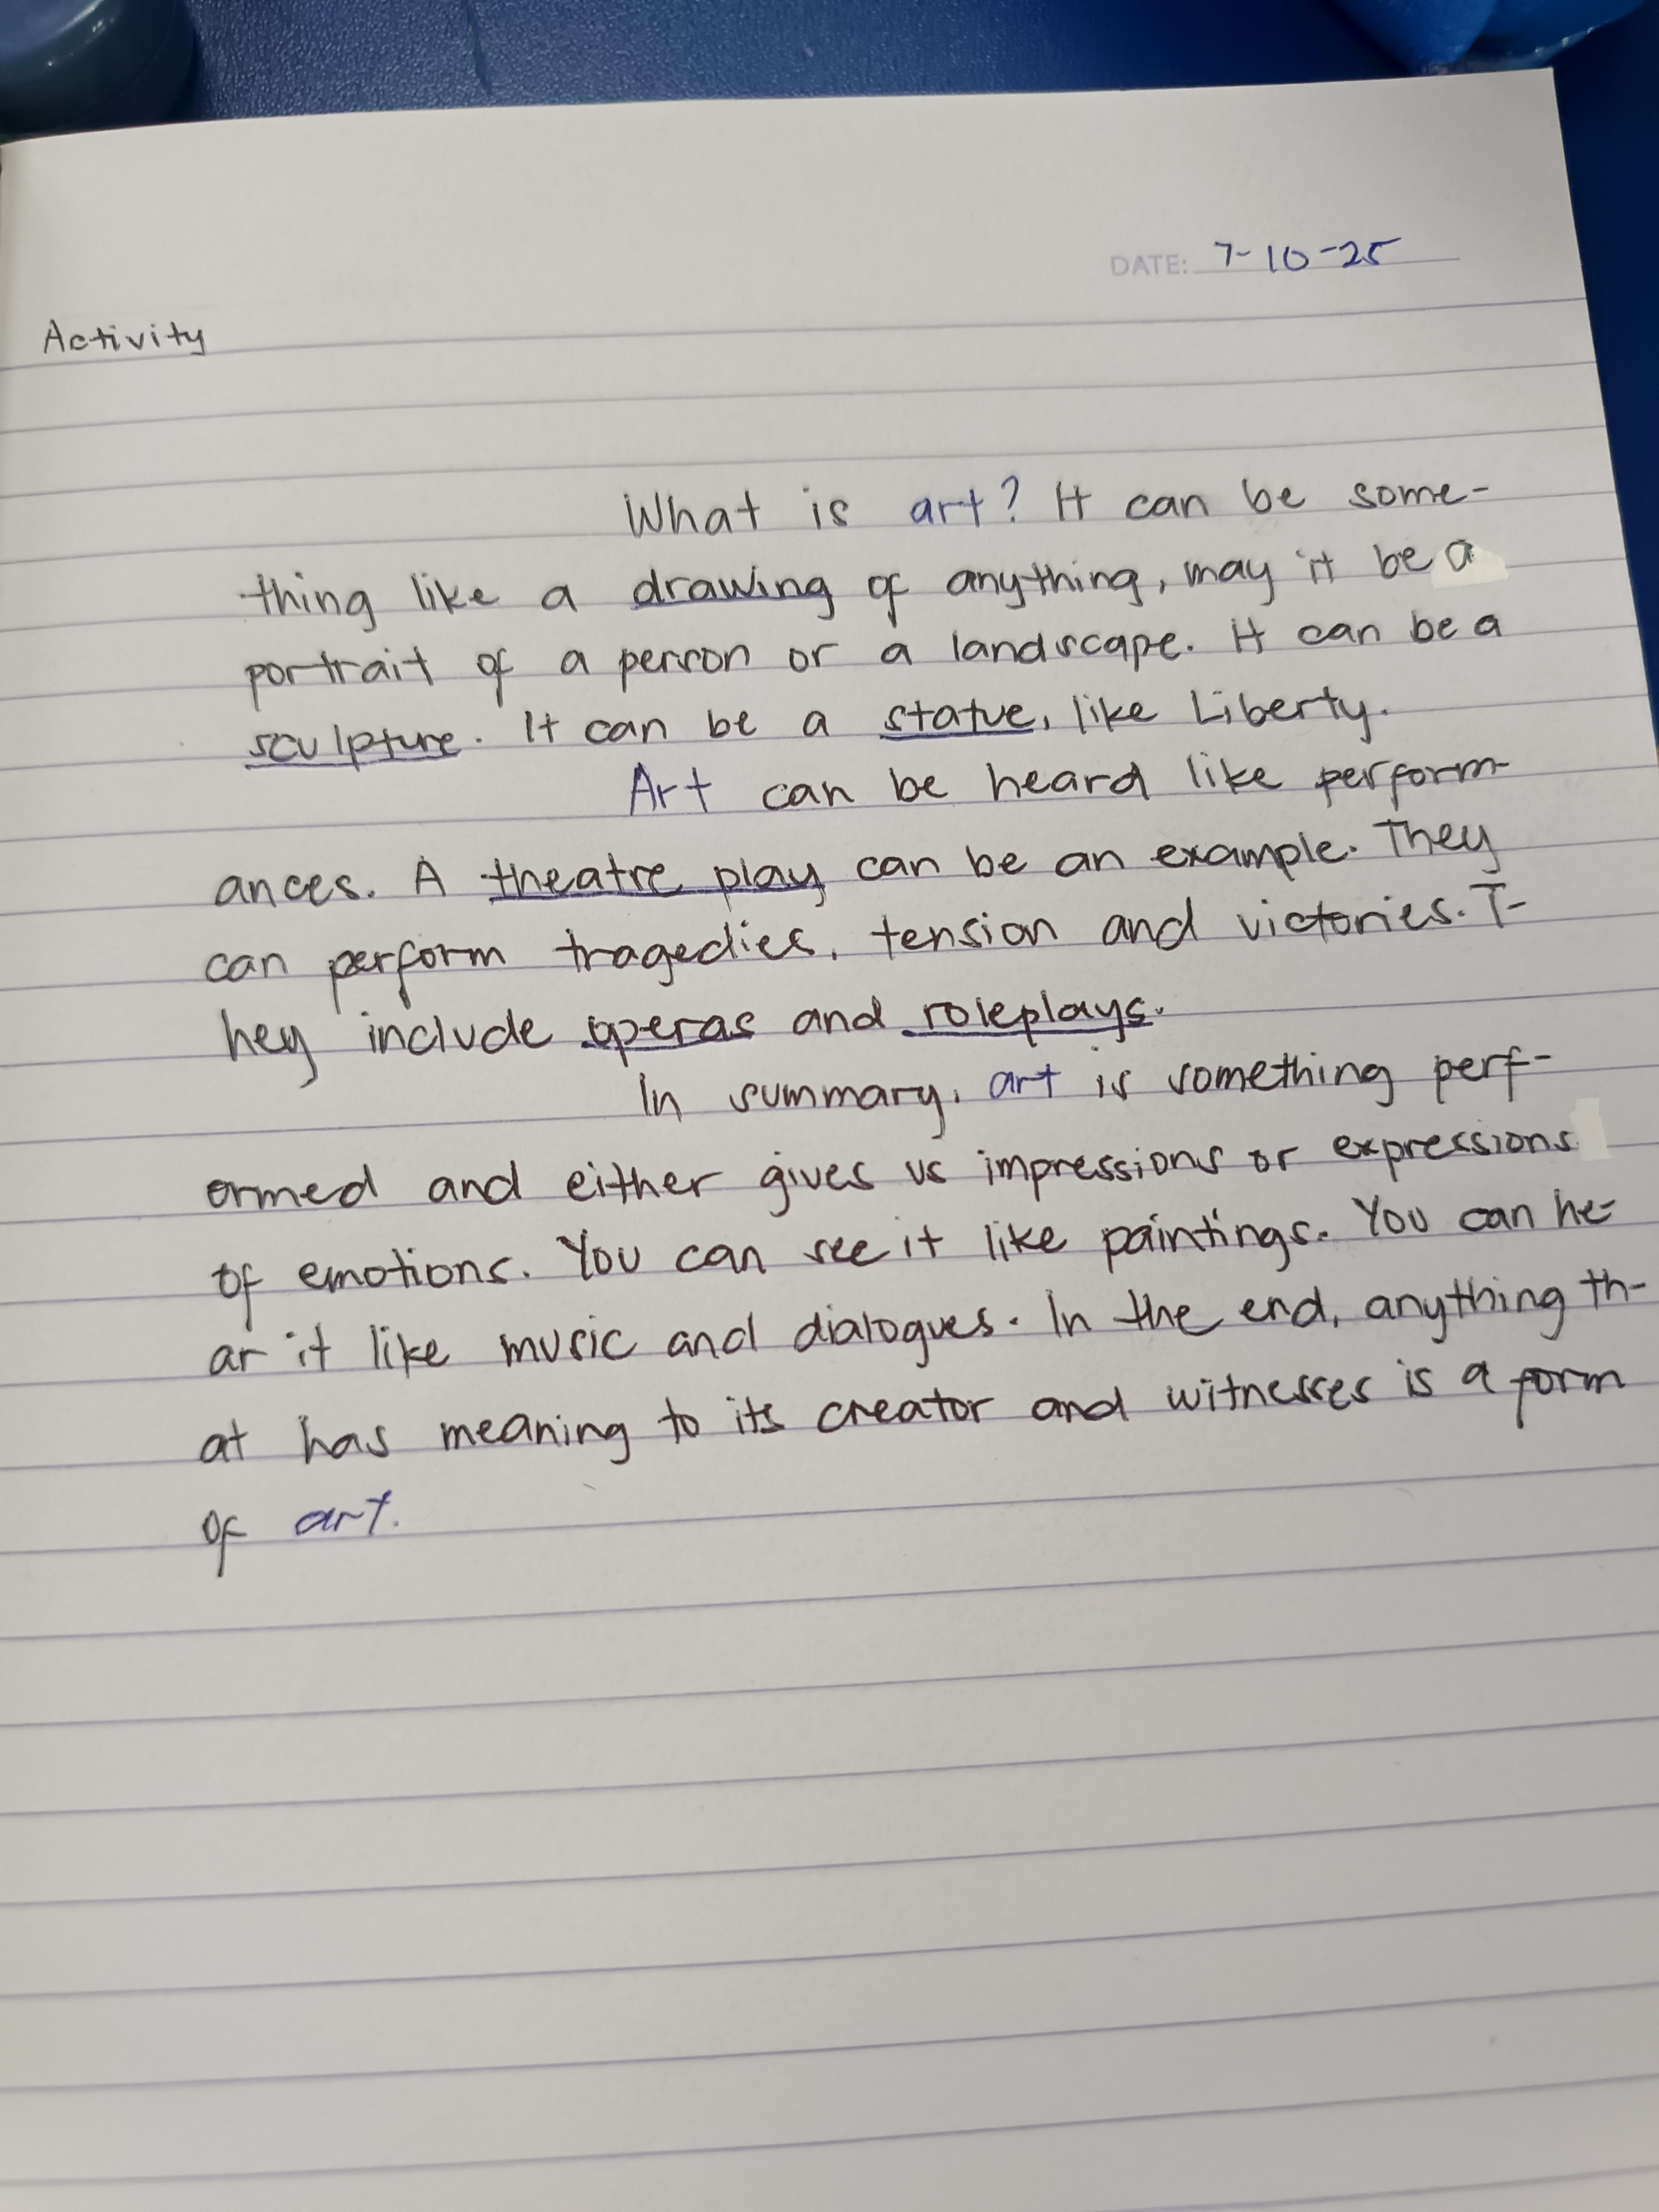 DATE: 7-10-25
Activity
What is art? It can be some-
thing like a drawing of anything, may it be a
portrait of a person or a landscape. It can be a
sculpture. It can be a statue, like Liberty.
Art can be heard like perform-
ances. A theatre play can be an example. They
can perform tragedies, tension and victories. T-
hey include operas and roleplays.
In summary, art is something perf-
ormed and either gives us impressions or expressions
of emotions. You can see it like paintings. You can he-
ar it like music and dialogues. In the end, anything th-
at has meaning to its creator and witnesses is a form
of art.